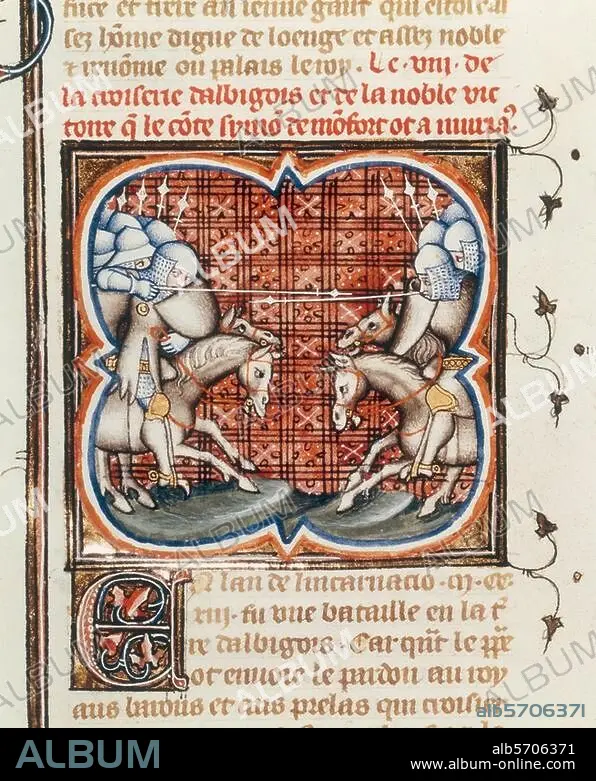 sez hōme digne de loenge et assez noble
⁊ renōme ou palais le roy. Le .viii. de
la croiserie dalbigois et de la noble vic
toire q̄ le cōte symō de mōfort ot a mura?
lan de lincarnacio .m. cc.
xiii. fu vne bataille en la t̄
re dalbigois. Car qn̄t le pp̄e
ot enuoie le pardon au roy
aus barons et aus prelas qui croisie
ALBUM
alb5706371
ALBUM
alb5706371
www.album-online.com